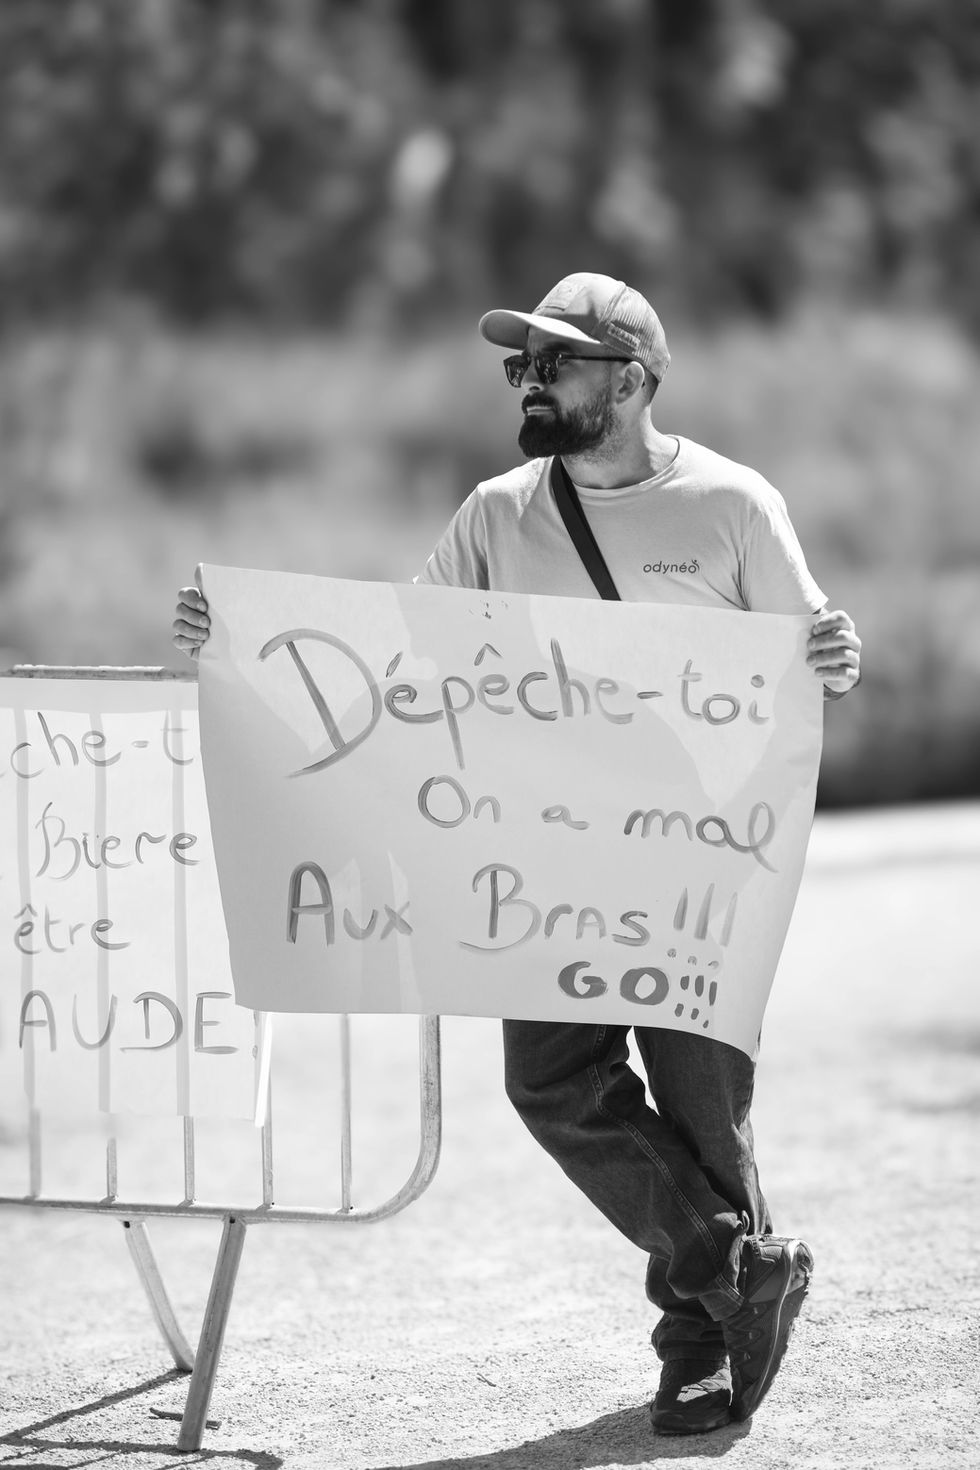 odynéo
Dépêche-toi
On a mal
Aux Bras !!!
GO!!!
che-t
Bière
être
AUDE